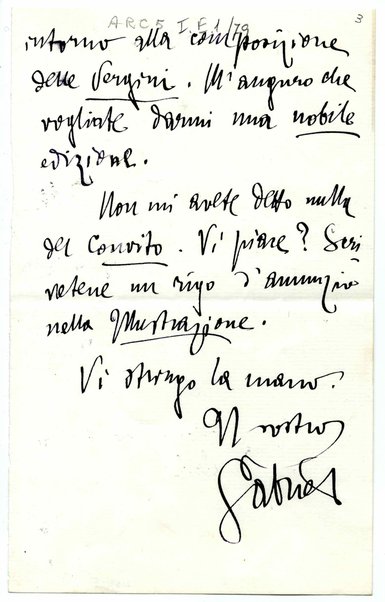 ARC 5 I.E 1/79
3
intorno alla composizione
delle Vergini. M'auguro che
vogliate darmi una nobile
edizione.
Non mi avete detto nulla
del Convito. Vi piace? Scri
vetene un rigo d'annunzio
nella Illustrazione.
Vi stringo la mano.
Il vostro
Gabriel